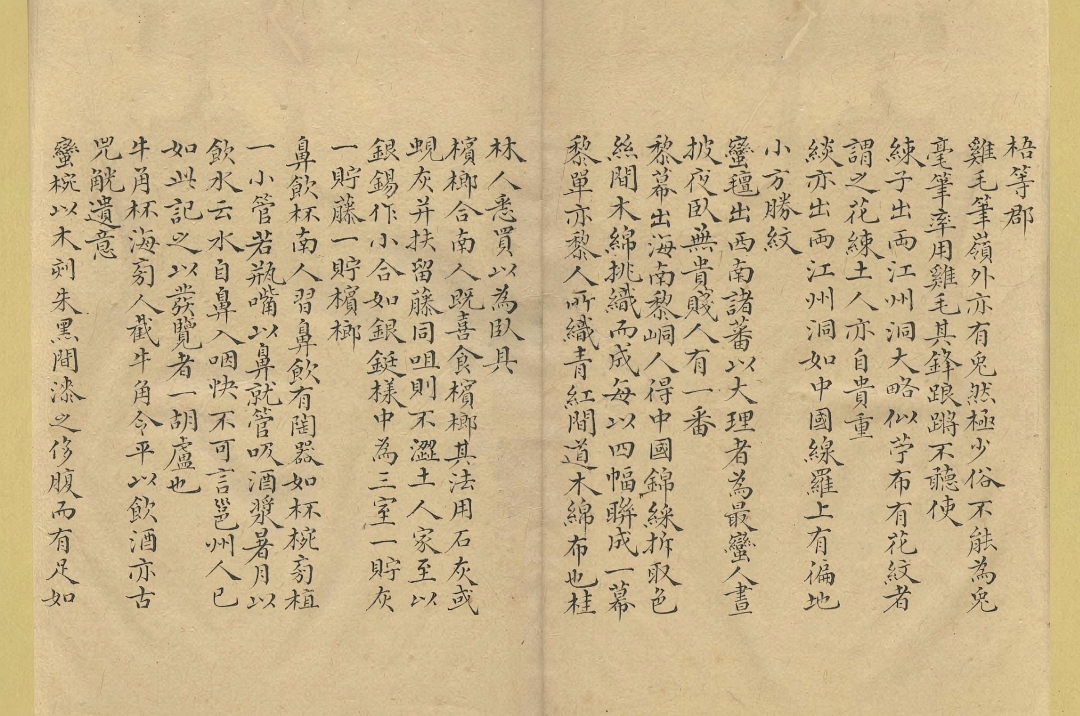 梧等郡
雞毛筆嶺外亦有兎然極少俗不能為兎
毫筆率用雞毛其鋒踉蹡不聽使
練子出两江州洞大略似苧布有花紋者
謂之花練土人亦自貴重
緂亦出两江州洞如中國線羅上有徧地
小方勝紋
蠻氊出西南諸蕃以大理者為最蠻人晝
披夜臥無貴賤人有一番
黎幕出海南黎峒人得中國錦綵拆取色
絲間木綿挑織而成每以四幅聨成一幕
黎單亦黎人所織青紅間道木綿布也桂
林人悉買以為臥具
檳榔合南人既喜食檳榔其法用石灰或
蜆灰并扶留藤同咀則不澀土人家至以
銀錫作小合如銀鋌樣中為三室一貯灰
一貯藤一貯檳榔
鼻飲杯南人習鼻飲有陶器如杯椀旁植
一小管若瓶嘴以鼻就管吸酒漿暑月以
飲水云水自鼻入咽快不可言邕州人已
如此記之以發覽者一胡盧也
牛角杯海旁人截牛角令平以飲酒亦古
兕觥遺意
蠻椀以木刻朱黑間漆之侈腹而有足如